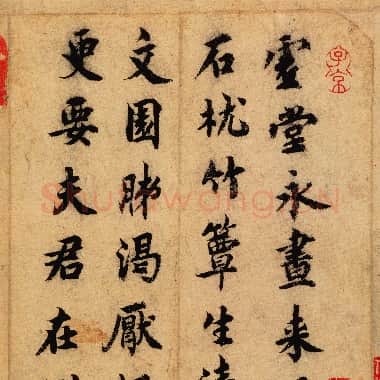 虚堂永晝来
石枕竹簟生
文園肺渴厭
更要夫君在